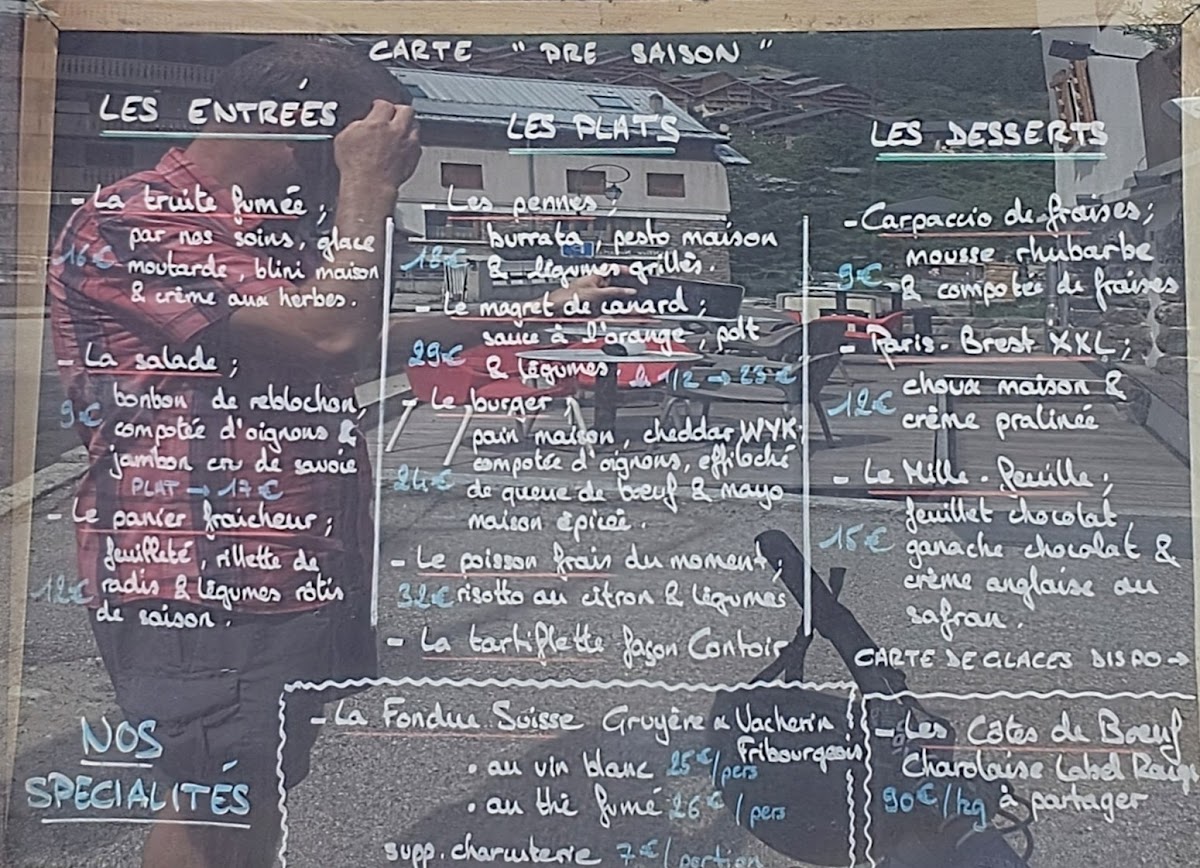 CARTE " PRE SAISON "
LES ENTRÉES
- La truite fumée ;
par nos soins, glace
16€ moutarde, blini maison
& crème aux herbes.
- La salade ;
bonbon de reblochon,
9€ compotée d'oignons &
jambon cru de savoie
PLAT → 17€
- Le panier fraicheur ;
feuilleté, rillette de
12€ radis & légumes rôtis
de saison.
LES PLATS
- Les pennes ;
burrata, pesto maison
18€ & légumes grillés.
- Le magret de canard ;
sauce à l'orange, pdt
29€ & légumes. le 1/2 → 23€
- Le burger ;
pain maison, cheddar WYK,
compotée d'oignons, effiloché
24€ de queue de bœuf & mayo
maison épicée.
- Le poisson frais du moment ;
32€ risotto au citron & légumes
- La tartiflette façon Contoir
LES DESSERTS
- Carpaccio de fraises ;
mousse rhubarbe
9€ & compotée de fraises
- Paris-Brest XXL ;
choux maison &
12€ crème pralinée
- Le Mille-feuille ;
feuillet chocolat,
15€ ganache chocolat &
crème anglaise au
safran.
CARTE DE GLACES DISPO →
NOS
SPECIALITÉS
- La Fondue Suisse Gruyère & Vacherin
Fribourgeois
• au vin blanc 25€/pers
• au thé fumé 26€/pers
supp. charcuterie 7€/portion
- Les Côtes de Boeuf
Charolaise Label
90€/kg à partager